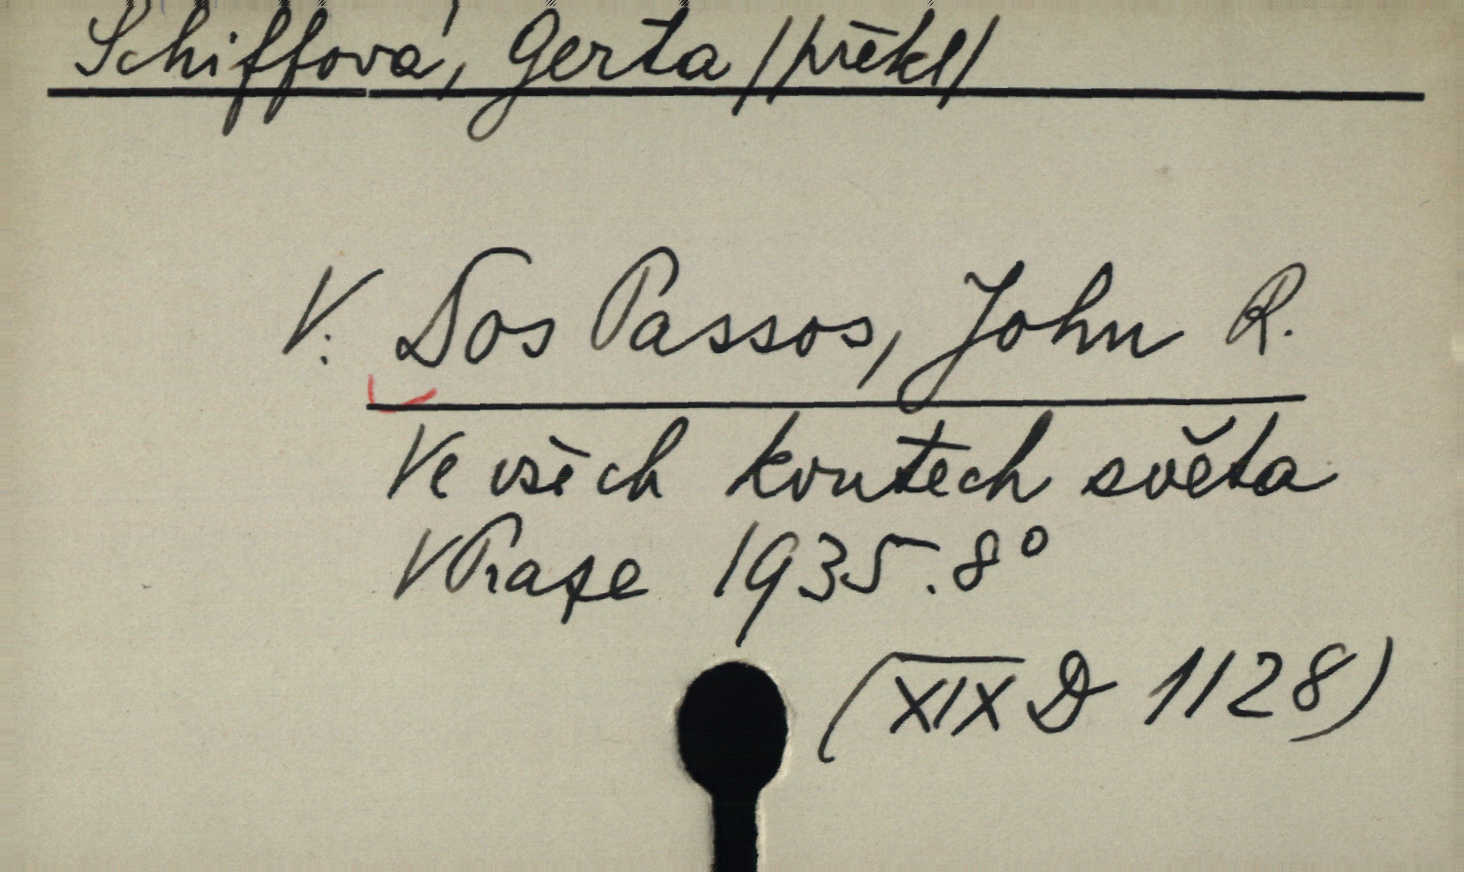 Schiffová, Gerta /překl/
V: Dos Passos, John R.
Ve všech koutech světa
V Praze 1935. 8°
(XIX D 1128)